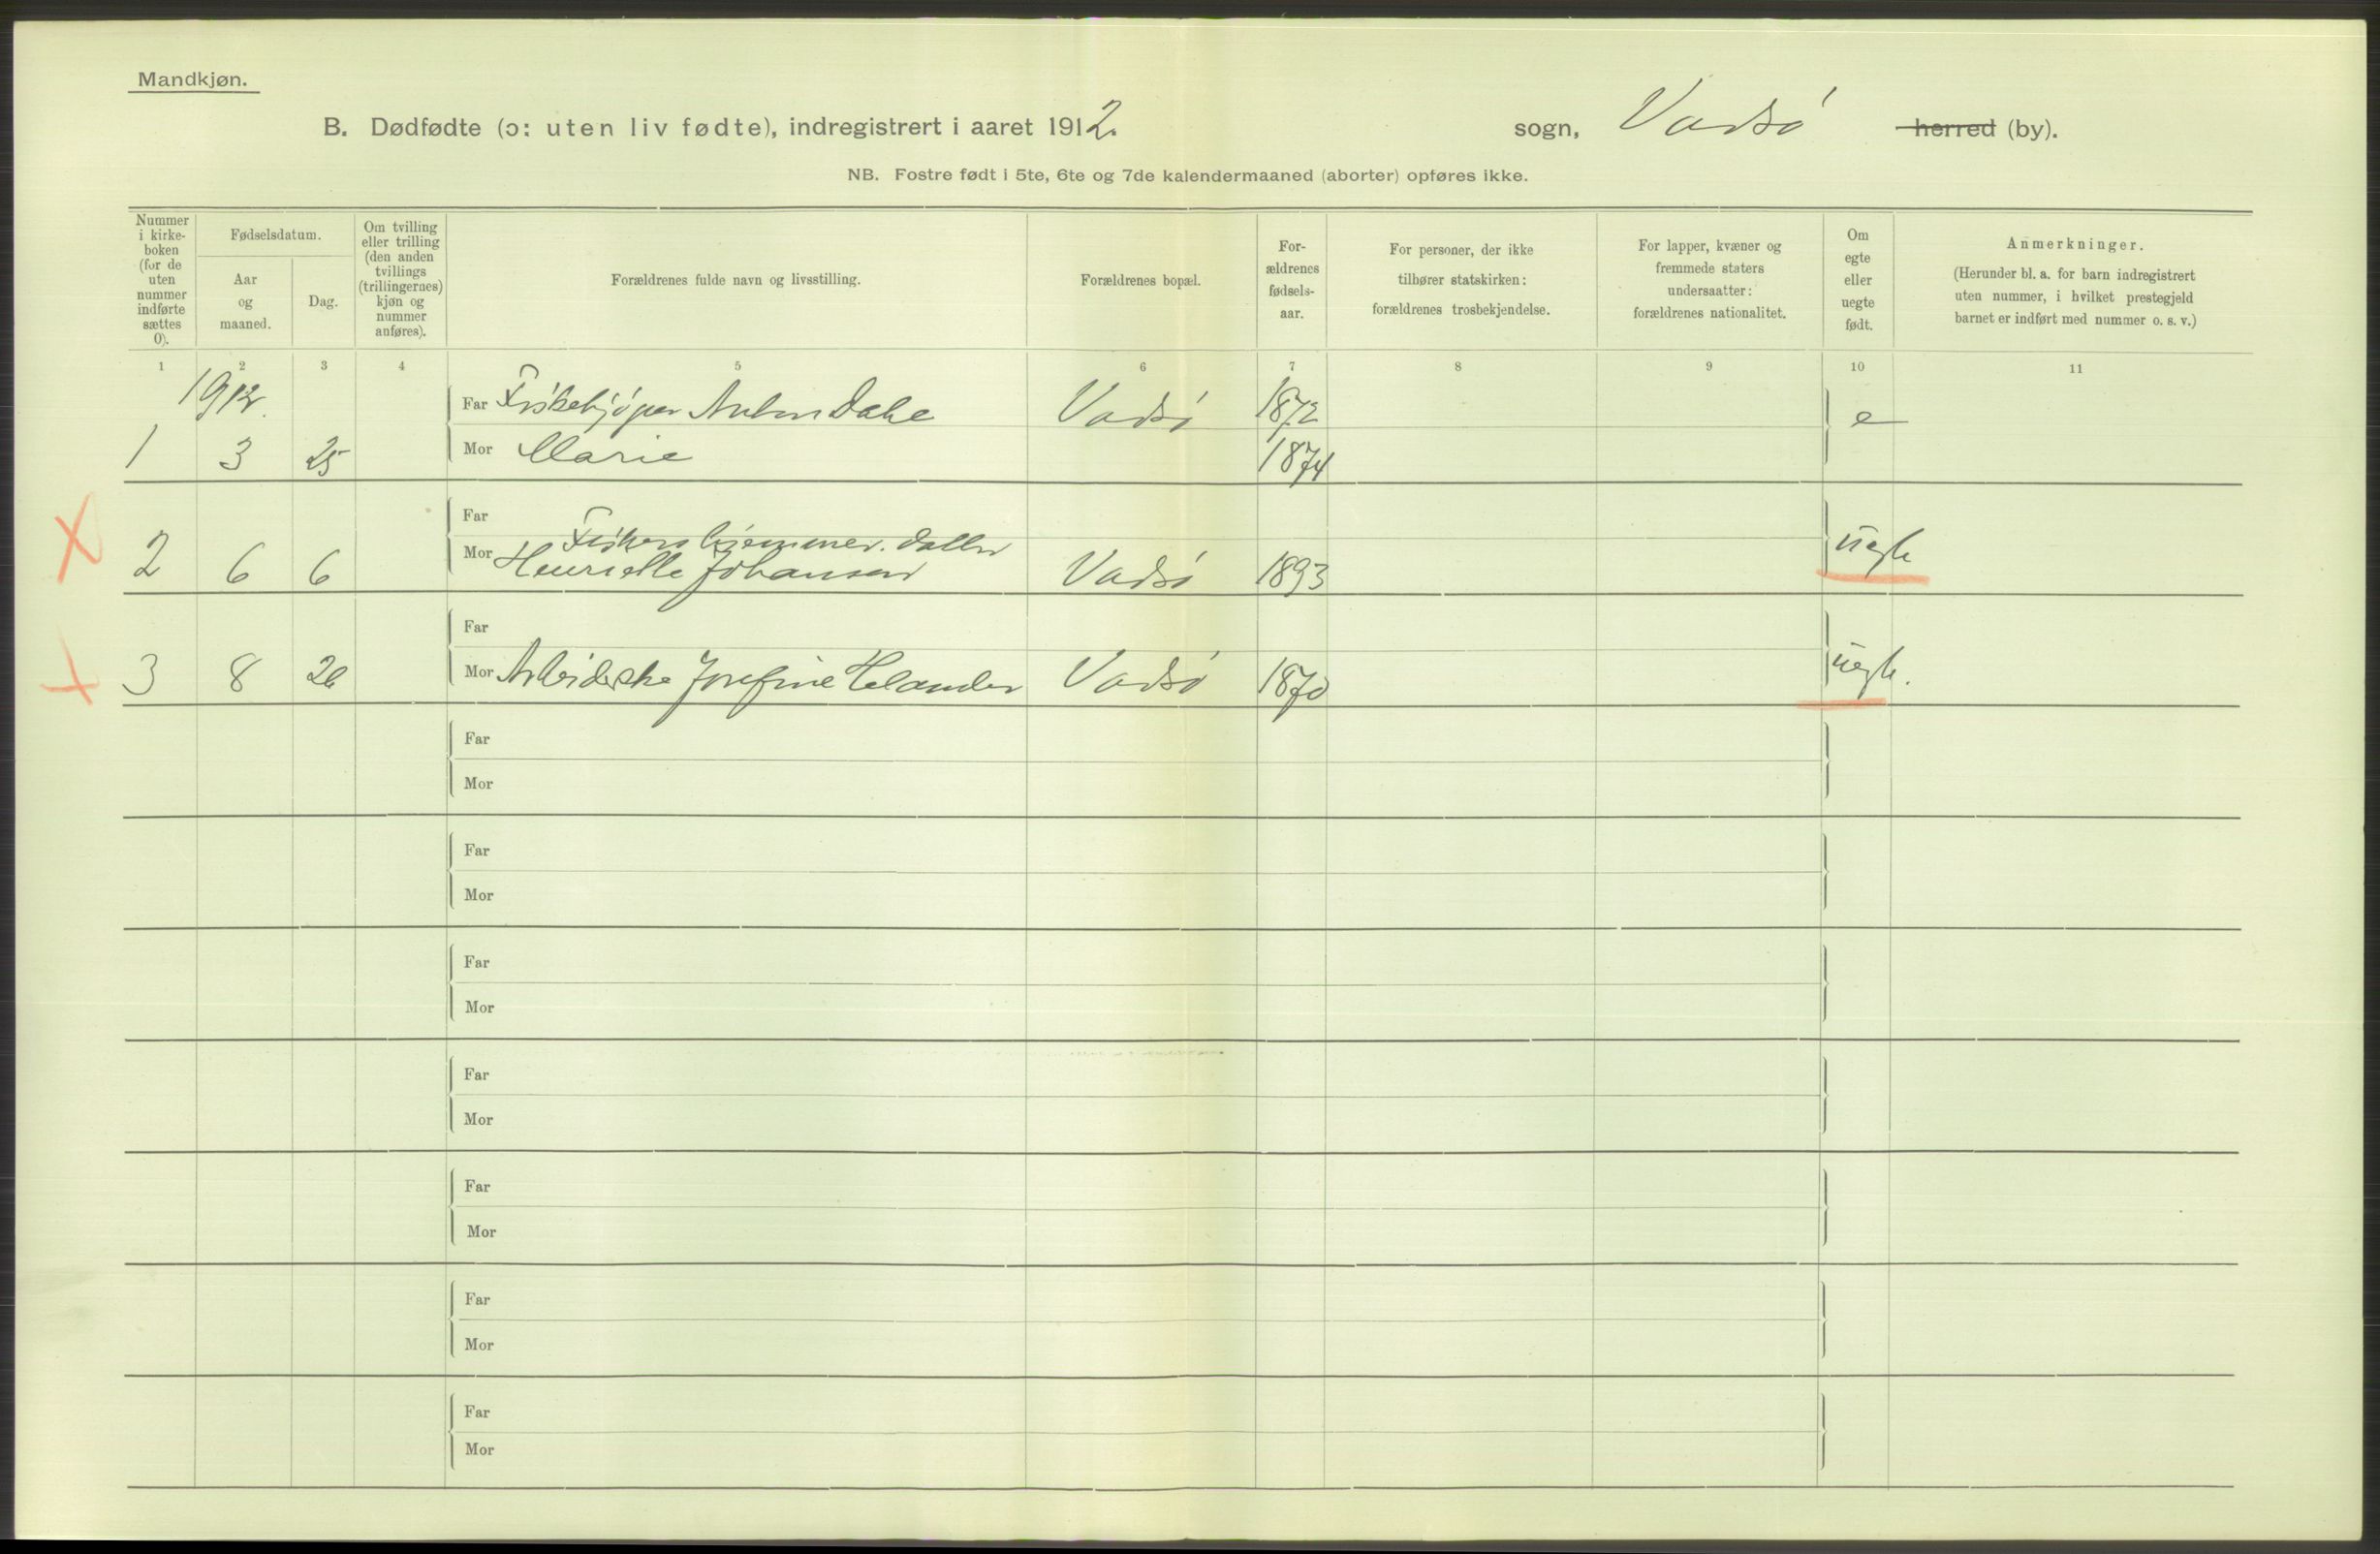 Mandkjøn.
B. Dødfødte (ɔ: uten liv fødte), indregistrert i aaret 1912. sogn, Vadsø herred (by).
NB. Fostre født i 5te, 6te og 7de kalendermaaned (aborter) opføres ikke.
Nummer
i kirke-
boken
(for de
uten
nummer
indførte
sættes
0).
Fødselsdatum.
Aar
og
maaned.
Dag.
Om tvilling
eller trilling
(den anden
tvillings
(trillingernes)
kjøn og
nummer
anføres).
Forældrenes fulde navn og livsstilling.
Forældrenes bopæl.
For-
ældrenes
fødsels-
aar.
For personer, der ikke
tilhører statskirken:
forældrenes trosbekjendelse.
For lapper, kvæner og
fremmede staters
undersaatter:
forældrenes nationalitet.
Om
egte
eller
uegte
født.
Anmerkninger.
(Herunder bl. a. for barn indregistrert
uten nummer, i hvilket prestegjeld
barnet er indført med nummer o. s. v.)
1 2 3 4 5 6 7 8 9 10 11
1912. Far Fiskekjøper Anton Dahl Vadsø 1872 e
1 3 25 Mor Marie 1874
Far
Fiskers hjemmev. datter
2 6 6 Mor Henriette Johansen Vadsø 1893 uegte
Far
3 8 26 Mor Arbeiderske Josefine Helander Vadsø 1870 uegte.
Far
Mor
Far
Mor
Far
Mor
Far
Mor
Far
Mor
Far
Mor
Far
Mor